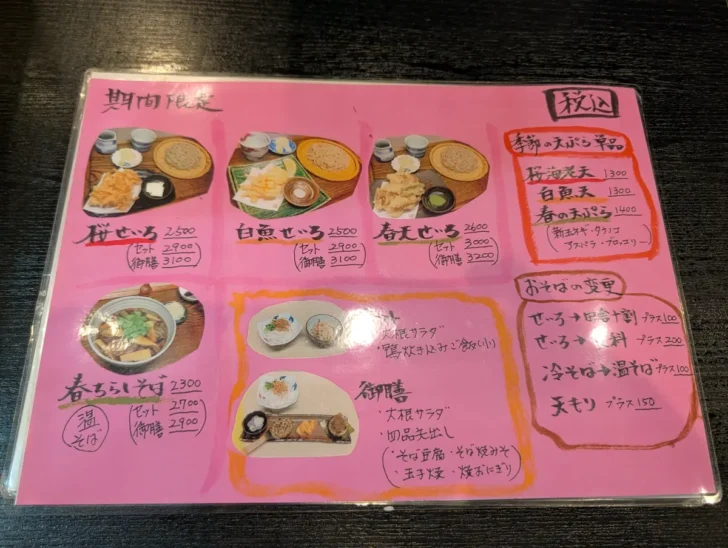 期間限定
税込
桜せいろ 2500
セット 2900
御膳 3100
白魚せいろ 2500
セット 2900
御膳 3100
春天せいろ 2600
セット 3000
御膳 3200
春ちらしそば 2300
温そば
セット 2700
御膳 2900
大根サラダ
・鴨炊き込みご飯(小)
御膳
・大根サラダ
・四品先出し
(そば豆腐・そば焼みそ
・玉子焼・焼おにぎり)
季節の天ぷら単品
桜海老天 1300
白魚天 1300
春の天ぷら 1400
(新玉ネギ・タケノコ
アスパラ・ブロッコリー)
おそばの変更
せいろ→田舎十割 プラス100
せいろ→ 料 プラス200
冷そば→温そば プラス100
天もり プラス150